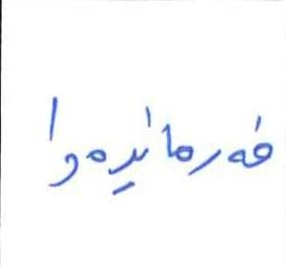 فەرمانڕەوا